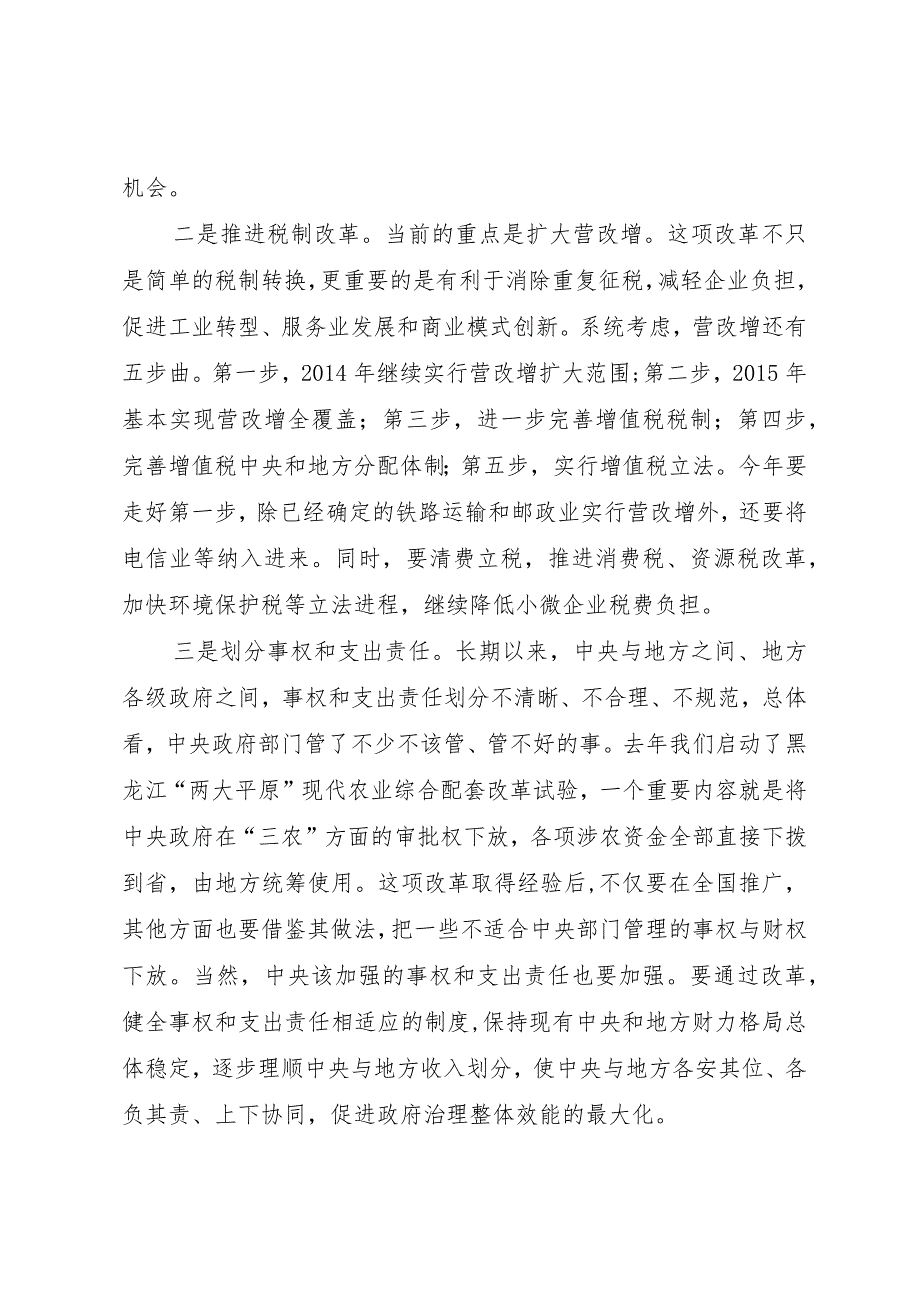 机会。
二是推进税制改革。当前的重点是扩大营改增。这项改革不只
是简单的税制转换,更重要的是有利于消除重复征税,减轻企业负担，
促进工业转型、服务业发展和商业模式创新。系统考虑，营改增还有
五步曲。第一步，2014年继续实行营改增扩大范围;第二步，2015年
基本实现营改增全覆盖；第三步，进一步完善增值税税制；第四步，
完善增值税中央和地方分配体制；第五步，实行增值税立法。今年要
走好第一步，除已经确定的铁路运输和邮政业实行营改增外，还要将
电信业等纳入进来。同时，要清费立税，推进消费税、资源税改革，
加快环境保护税等立法进程，继续降低小微企业税费负担。
三是划分事权和支出责任。长期以来，中央与地方之间、地方
各级政府之间，事权和支出责任划分不清晰、不合理、不规范，总体
看，中央政府部门管了不少不该管、管不好的事。去年我们启动了黑
龙江“两大平原”现代农业综合配套改革试验，一个重要内容就是将
中央政府在“三农”方面的审批权下放，各项涉农资金全部直接下拨
到省，由地方统筹使用。这项改革取得经验后,不仅要在全国推广，
其他方面也要借鉴其做法,把一些不适合中央部门管理的事权与财权
下放。当然，中央该加强的事权和支出责任也要加强。要通过改革，
健全事权和支出责任相适应的制度,保持现有中央和地方财力格局总
体稳定，逐步理顺中央与地方收入划分，使中央与地方各安其位、各
负其责、上下协同，促进政府治理整体效能的最大化。